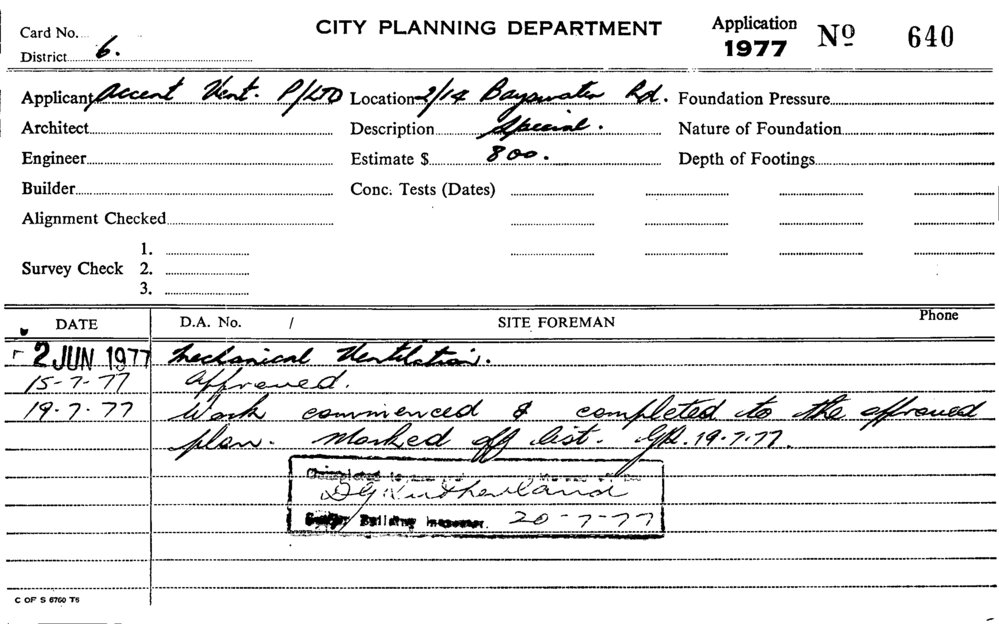 Card No.
CITY PLANNING DEPARTMENT
Application
1977 Nº 640
District 6.
Applicant Accent Vent. P/LTD Location 2/14 Bayswater Rd. Foundation Pressure
Architect Description Special. Nature of Foundation
Engineer Estimate $ 800. Depth of Footings
Builder Conc. Tests (Dates)
Alignment Checked
1.
Survey Check 2.
3.
DATE D.A. No. / SITE FOREMAN Phone
2 JUN 1977 Mechanical Ventilation.
15-7-77 Approved.
19.7.77 Work commenced & completed to the approved
plan. Marked off list. 19.7.77.
Completed to
D G Sutherland
Building Inspector. 20-7-77
C OF S 6760 T6